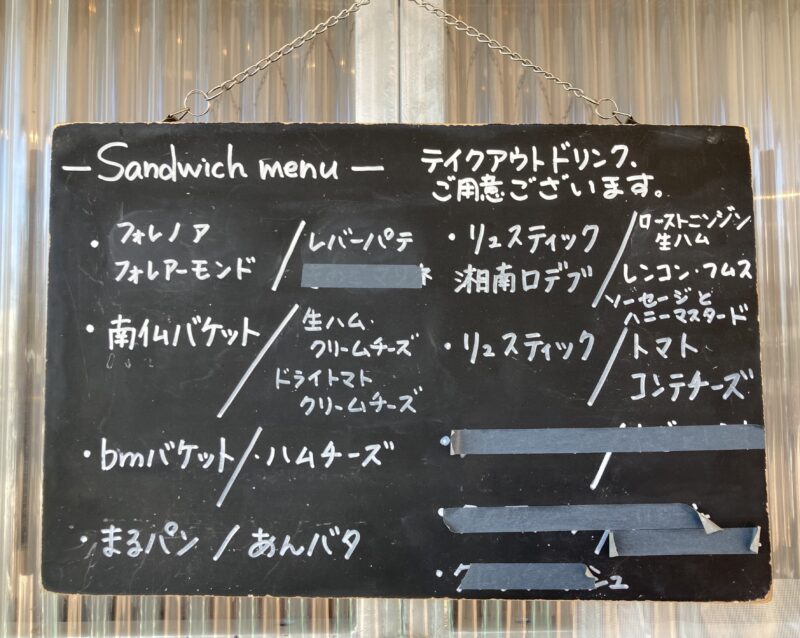 — Sandwich menu —
テイクアウトドリンク、
ご用意ございます。
・フォレノア / レバーパテ
フォレアーモンド
・南仏バケット / 生ハム・
クリームチーズ
ドライトマト
クリームチーズ
・bmバケット / ・ハムチーズ
・まるパン / あんバタ
・リュスティック / ローストニンジン
生ハム
湘南ロデブ
レンコン・フムス
ソーセージと
ハニーマスタード
・リュスティック / トマト
コンテチーズ